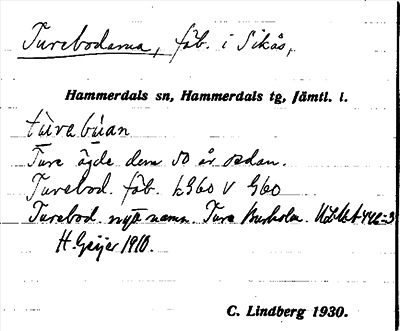 Turebodarna, fäb. i Sikås,
Hammerdals sn, Hammerdals tg, Jämtl. l.
tùrebúan
Ture ägde dem 50 år sedan.
Turebod. fäb. LSG0 V G60
Turebod. nytt namn. Ture Burholm.
H. Geijer 1910.
C. Lindberg 1930.